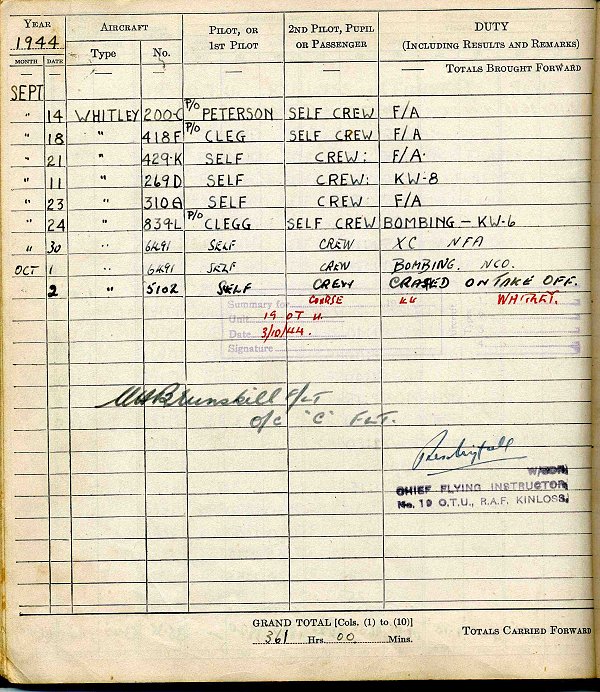 YEAR AIRCRAFT PILOT, OR 2ND PILOT, PUPIL DUTY
1944 1ST PILOT OR PASSENGER (INCLUDING RESULTS AND REMARKS)
MONTH DATE Type No.
— — — — — TOTALS BROUGHT FORWARD
SEPT
" 14 WHITLEY 200-C P/O PETERSON SELF CREW F/A
" 18 " 418 F P/O CLEG SELF CREW F/A
" 21 " 429-K SELF CREW: F/A.
" 11 " 269 D SELF CREW: KW-8
" 23 " 310 SELF CREW F/A
" 24 " 839-L P/O CLEGG SELF CREW BOMBING - KW-6
" 30 " 6491 SELF CREW XC NFA
OCT 1 " 6491 SELF CREW BOMBING. NCO.
2 " 5102 SELF CREW CRASED ON TAKE OFF.
Summary for COURSE
19 OT U.
Date 3/10/44.
Signature
WHBrunskill F/LT
O/C "C" FLT.
W/CDR,
CHIEF FLYING INSTRUCTOR,
No. 19 O.T.U., R.A.F. KINLOSS.
GRAND TOTAL [Cols. (1) to (10)]
361 Hrs. 00 Mins. TOTALS CARRIED FORWARD